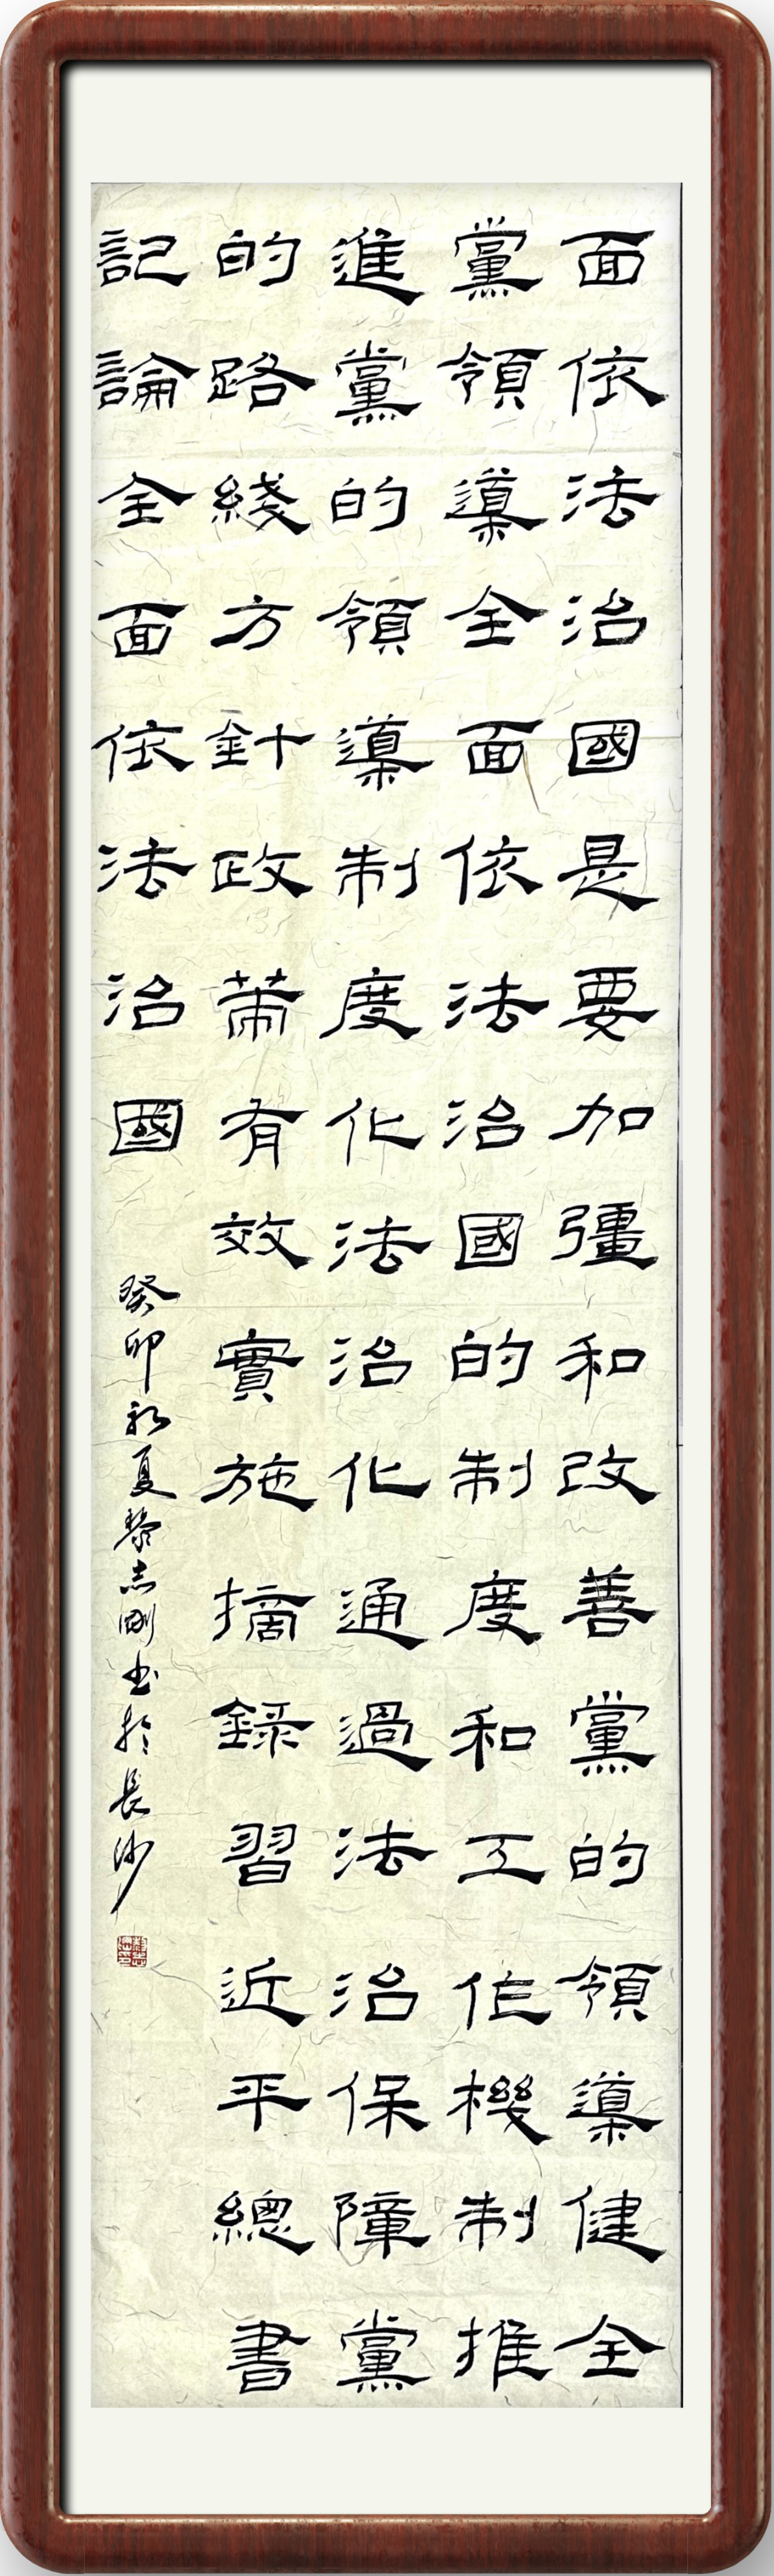 面依法治國是要加彊和改善黨的領導健全
黨領導全面依法治國的制度和工作機制推
進黨的領導制度化法治化通過法治保障黨
的路綫方針政策有效實施摘録習近平總書
記論全面依法治國
癸卯初夏黎志剛书於長沙